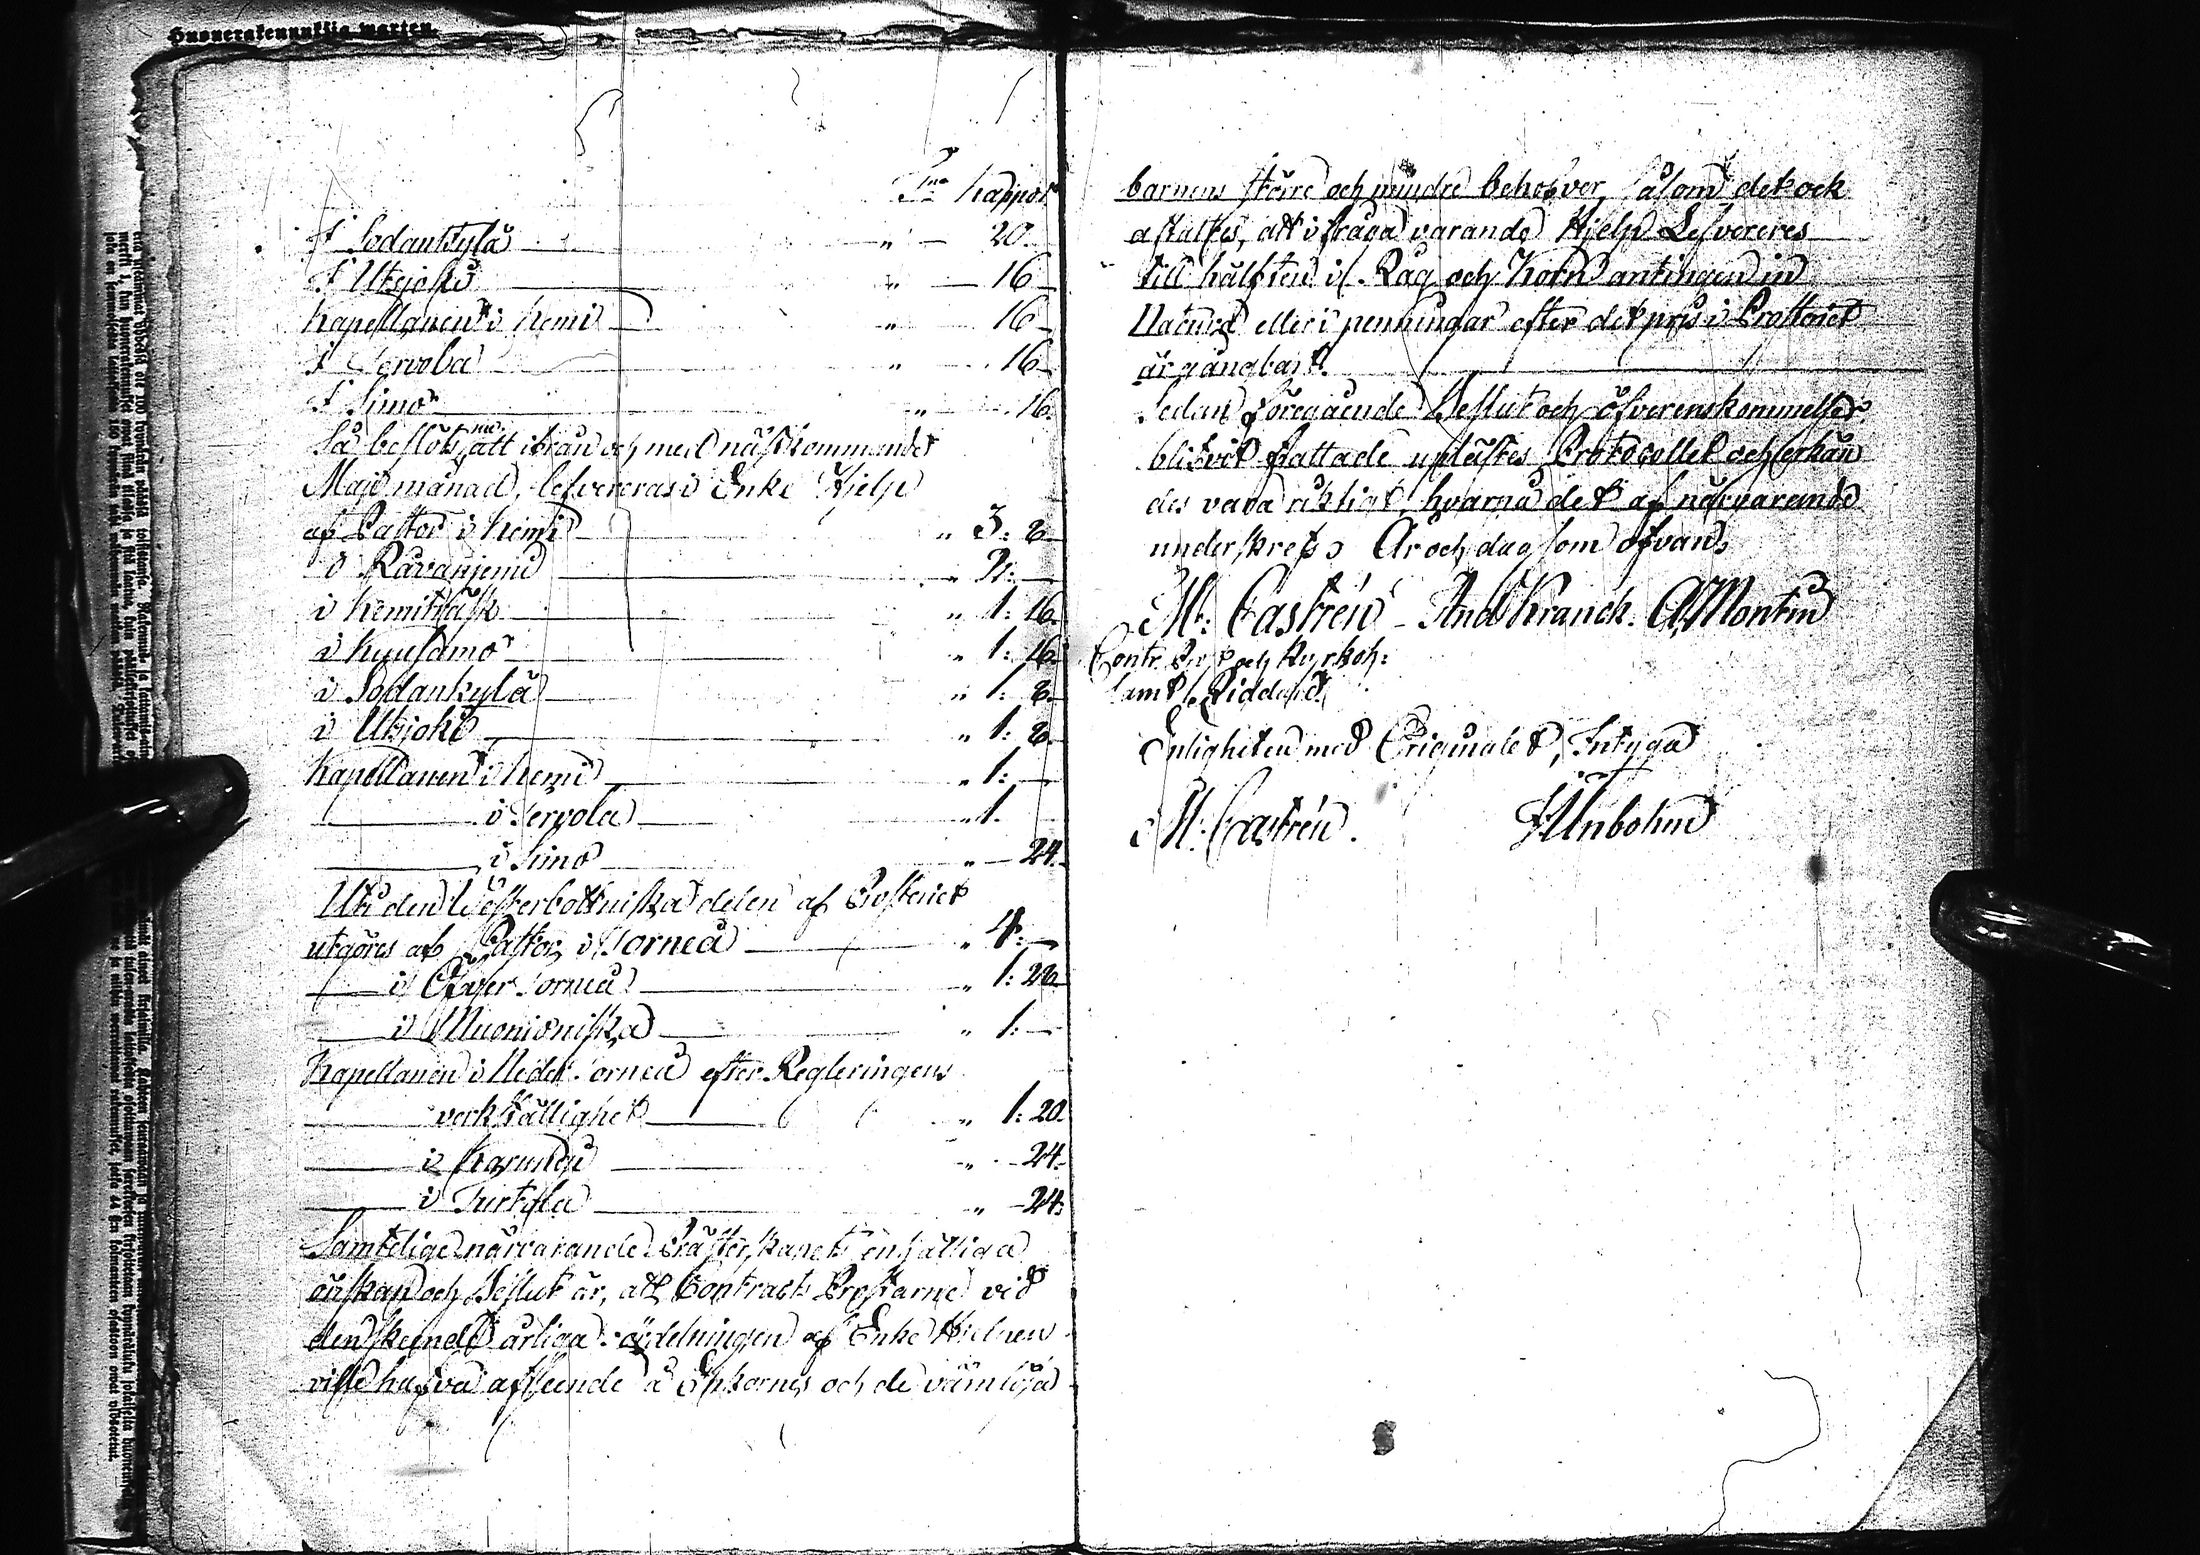 Huonerakennuksia warten.
Tna Kappor
I Sodankylä " — 20.
I Utsjoki " — 16
Kapellanen i Kemi " 16
I Tervola " 16
I Simo " 16.
Så beslöts nu, att ifrån och med nästkommande
Maji månad, lefvereras i Enke Hjelp
af Pastor i Kemi " 3: 8
i Råvanjemi " 2: —
i Kemiträsk " 1: 16.
i Kuusamo " 1: 16.
i Sodankylä " 1: 8.
i Utsjoki " 1: 8.
Kapellanen i Kemi " 1: —
i Tervola " 1.
i Simo " — 24.
Uti den Westerbottniska delen af Prosteriet
utgöres af Pastor i Torneå " 4: —
i Öfver Torneå " 1: 28.
i Muonioniska " 1: —
Kapellanen i Neder Torneå efter Regleringens
verkställighet " 1: 20.
i Karungi " — 24.
i Turtola " — 24.
Samtelige närvarande Prästerskapets enhälliga
önskan och Beslut är, att Contracts Prostarne vid
den skeende årliga fördelningen af Enke Hjelpen
ville hafva afseende å Enkornes och de värnlösa
barnens större och mindre behofver, såsom det ock
aftaltes, att i fråga varande Hjelp Lefvereres
till hälften i Råg och Korn antingen in
Natura eller i penningar efter det pris i Prosteriet
är gångbart.
Sedan föregående Beslut och öfverenskommelser
blifvit fattade uplästes Protocollet och erkän
des vara riktigt, hvarpå det af närvarande
underskrefs. År och dag som ofvan,
M: Castrén And Kranck. A. Montin
Contr. Prost och Kyrkoh:
samt Riddare
Enligheten med Originalet, Intyga
M: Castrén.